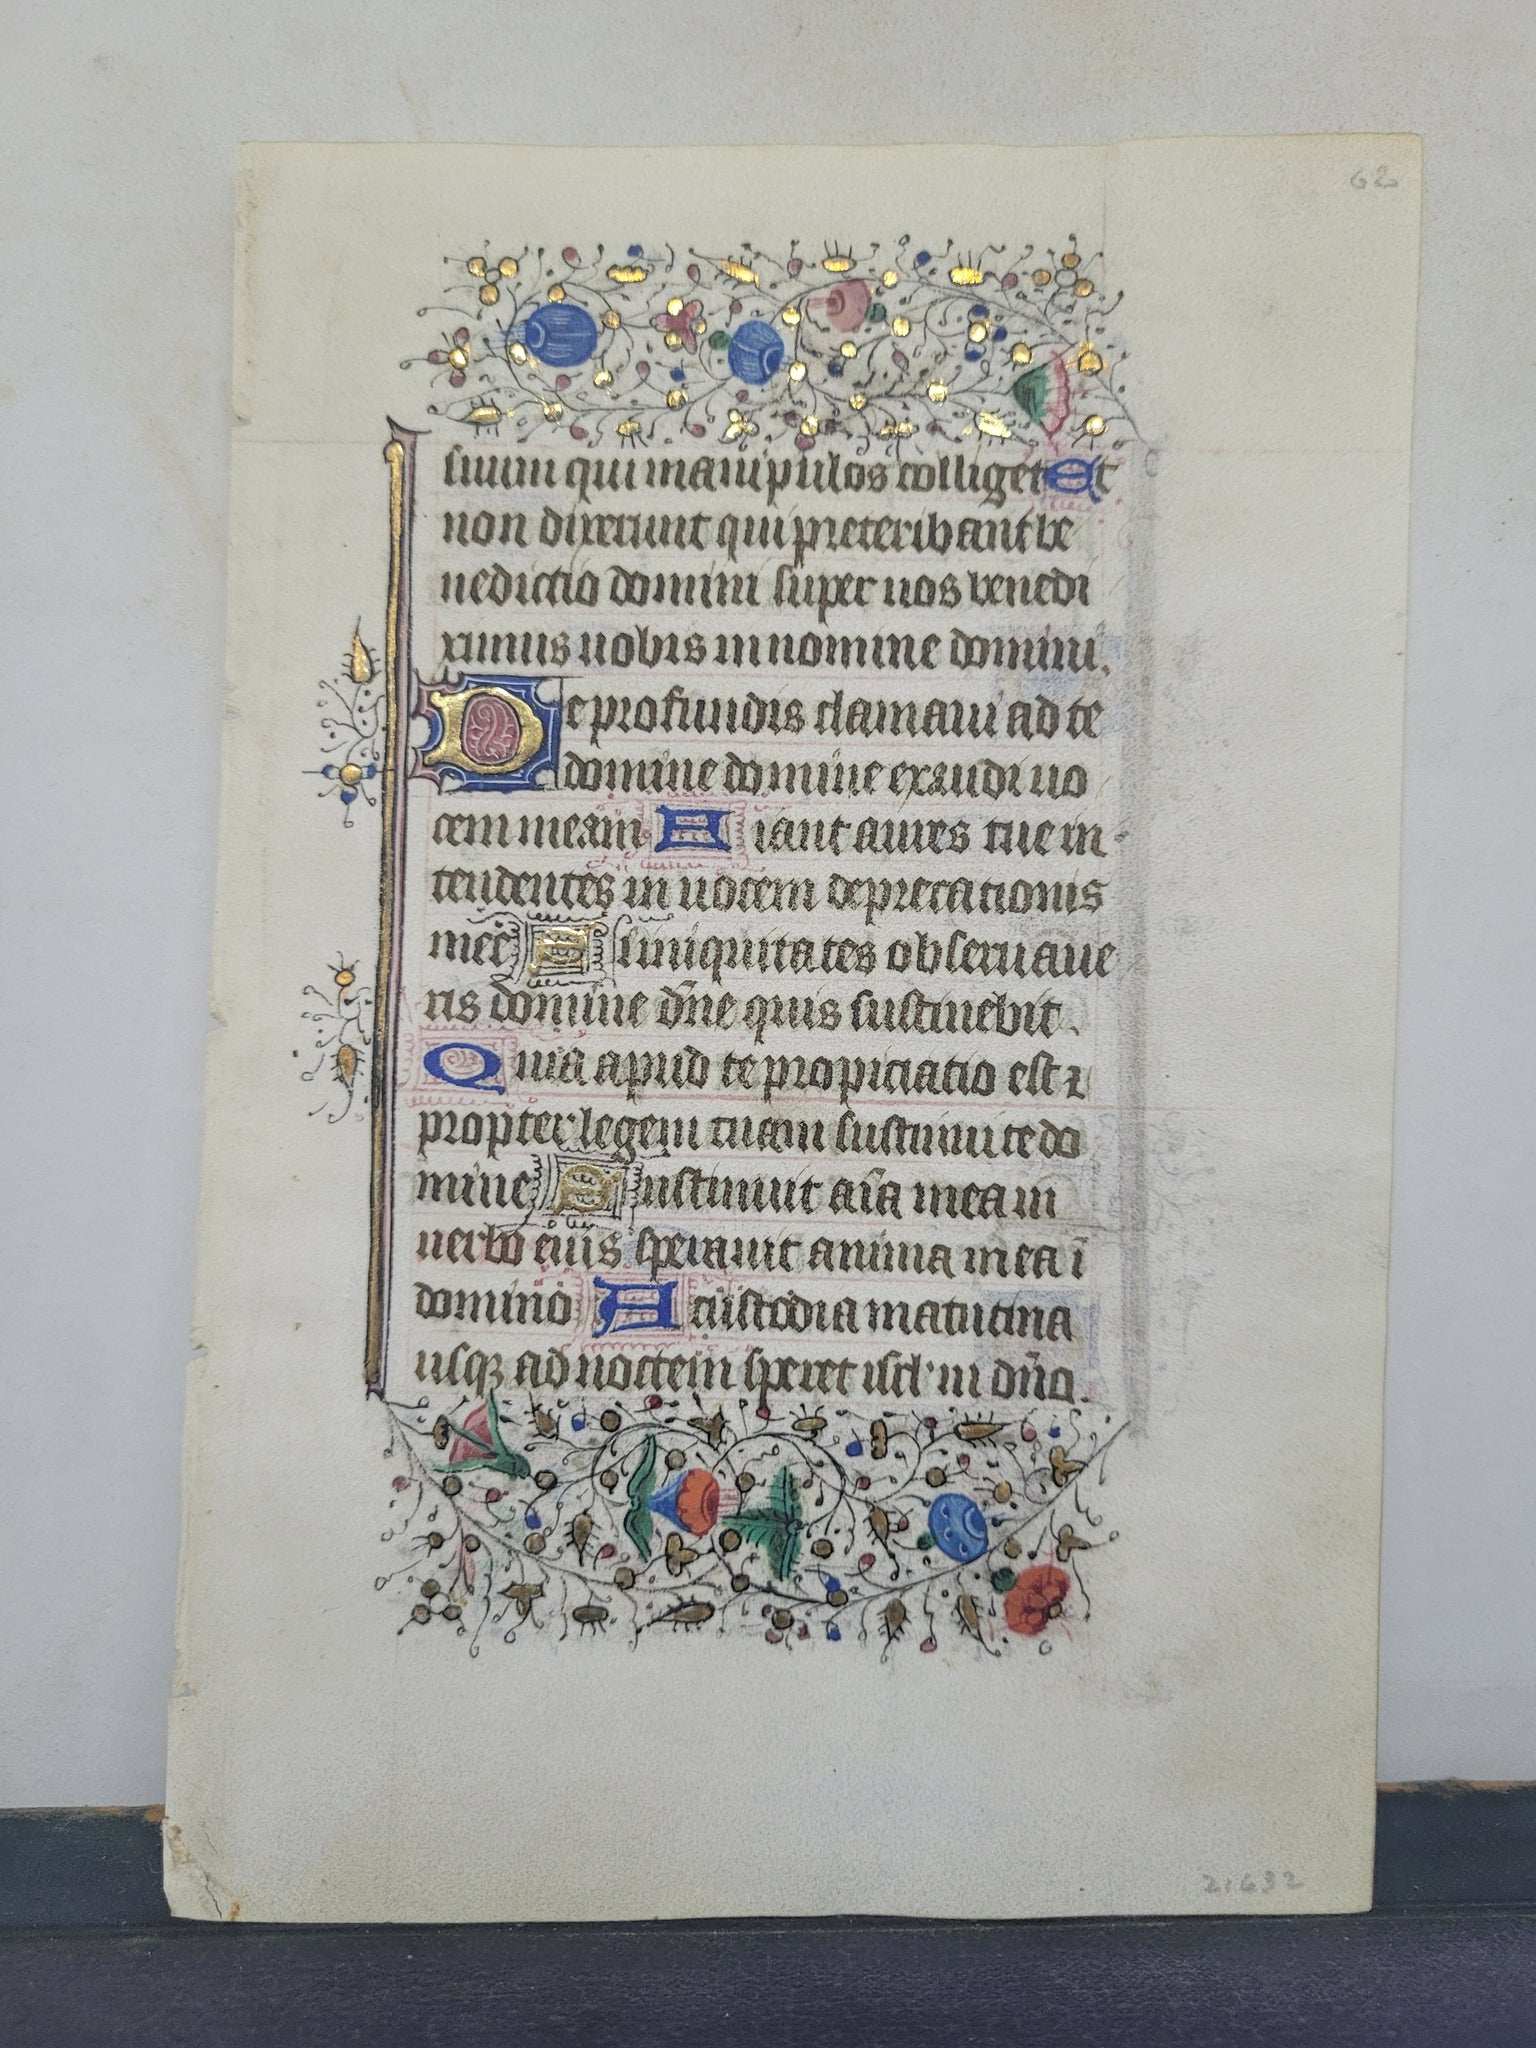 62
suum qui manipulos colliget Et
non dixerunt qui preteribant be
nedictio domini super uos benedi
ximus uobis in nomine domini.
De profundis clamaui ad te
domine domine exaudi uo
cem meam Fiant aures tue in
tendentes in uocem deprecationis
mee Si iniquitates obseruaue
ris domine dn̄e quis sustinebit.
Quia apud te propiciatio est ⁊
propter legem tuam sustinui te do
mine Sustinuit aīa mea in
uerbo eius sperauit anima mea ī
domino A custodia matutina
usqꝫ ad noctem speret isrl' in dn̄o.
21632